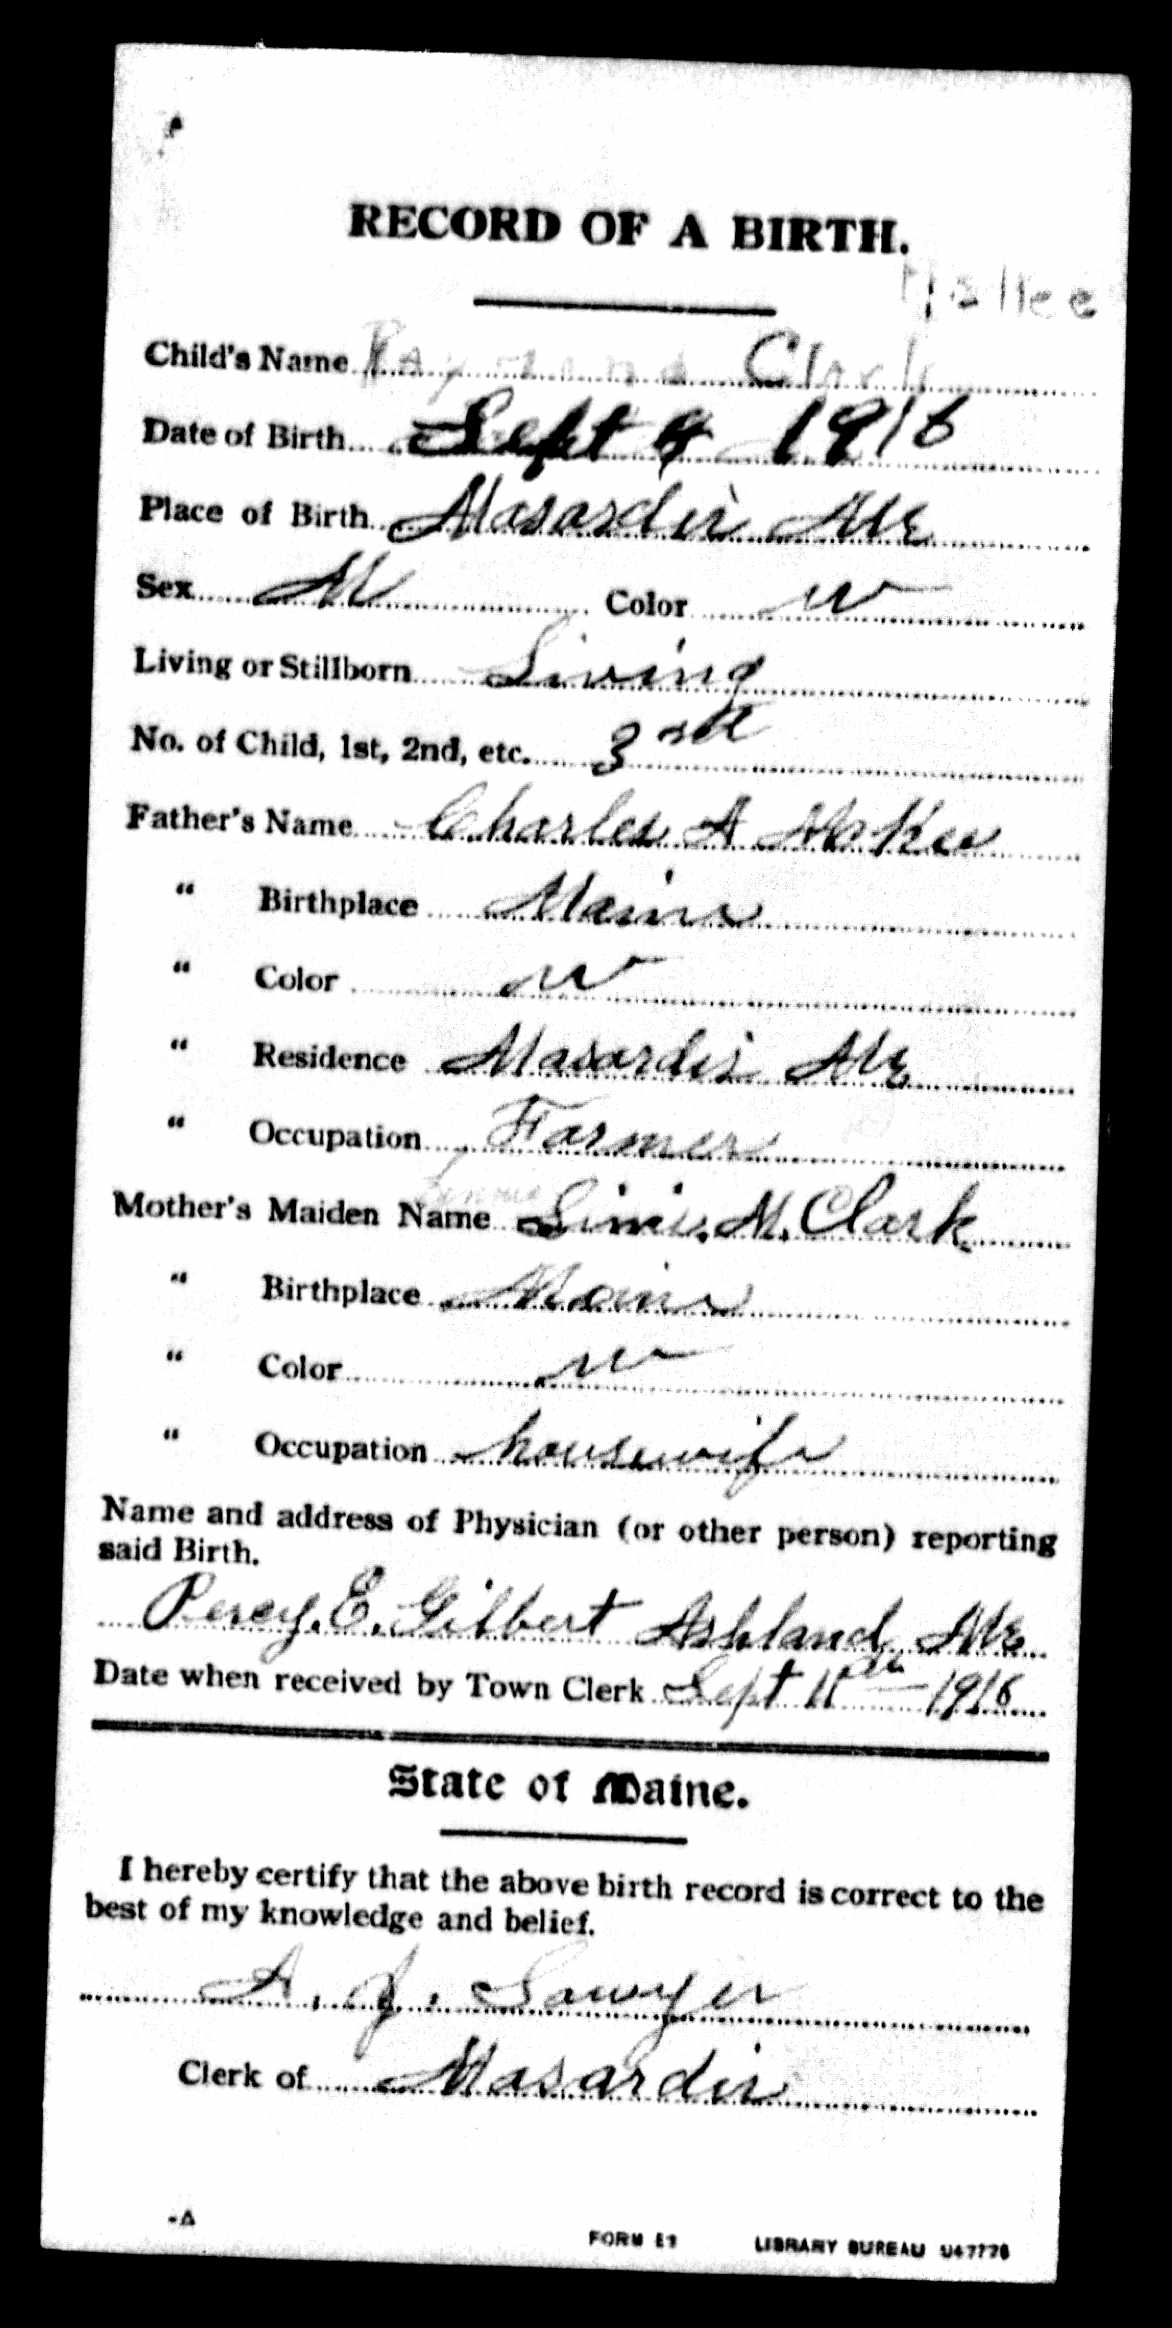 RECORD OF A BIRTH.
Child's Name Raymond Clark
Date of Birth Sept 9 1916
Place of Birth Masardis Me
Sex M Color W
Living or Stillborn Living
No. of Child, 1st, 2nd, etc. 3rd
Father's Name Charles A
" Birthplace Maine
" Color W
" Residence Masardis Me
" Occupation Farmer
Mother's Maiden Name M. Clark
" Birthplace Maine
" Color W
" Occupation housewife
Name and address of Physician (or other person) reporting
said Birth.
Percy. E. Gilbert Ashland Me
Date when received by Town Clerk Sept 11th 1916
State of Maine.
I hereby certify that the above birth record is correct to the
best of my knowledge and belief.
A. J. Sawyer
Clerk of Masardis
FORM LIBRARY BUREAU U47778